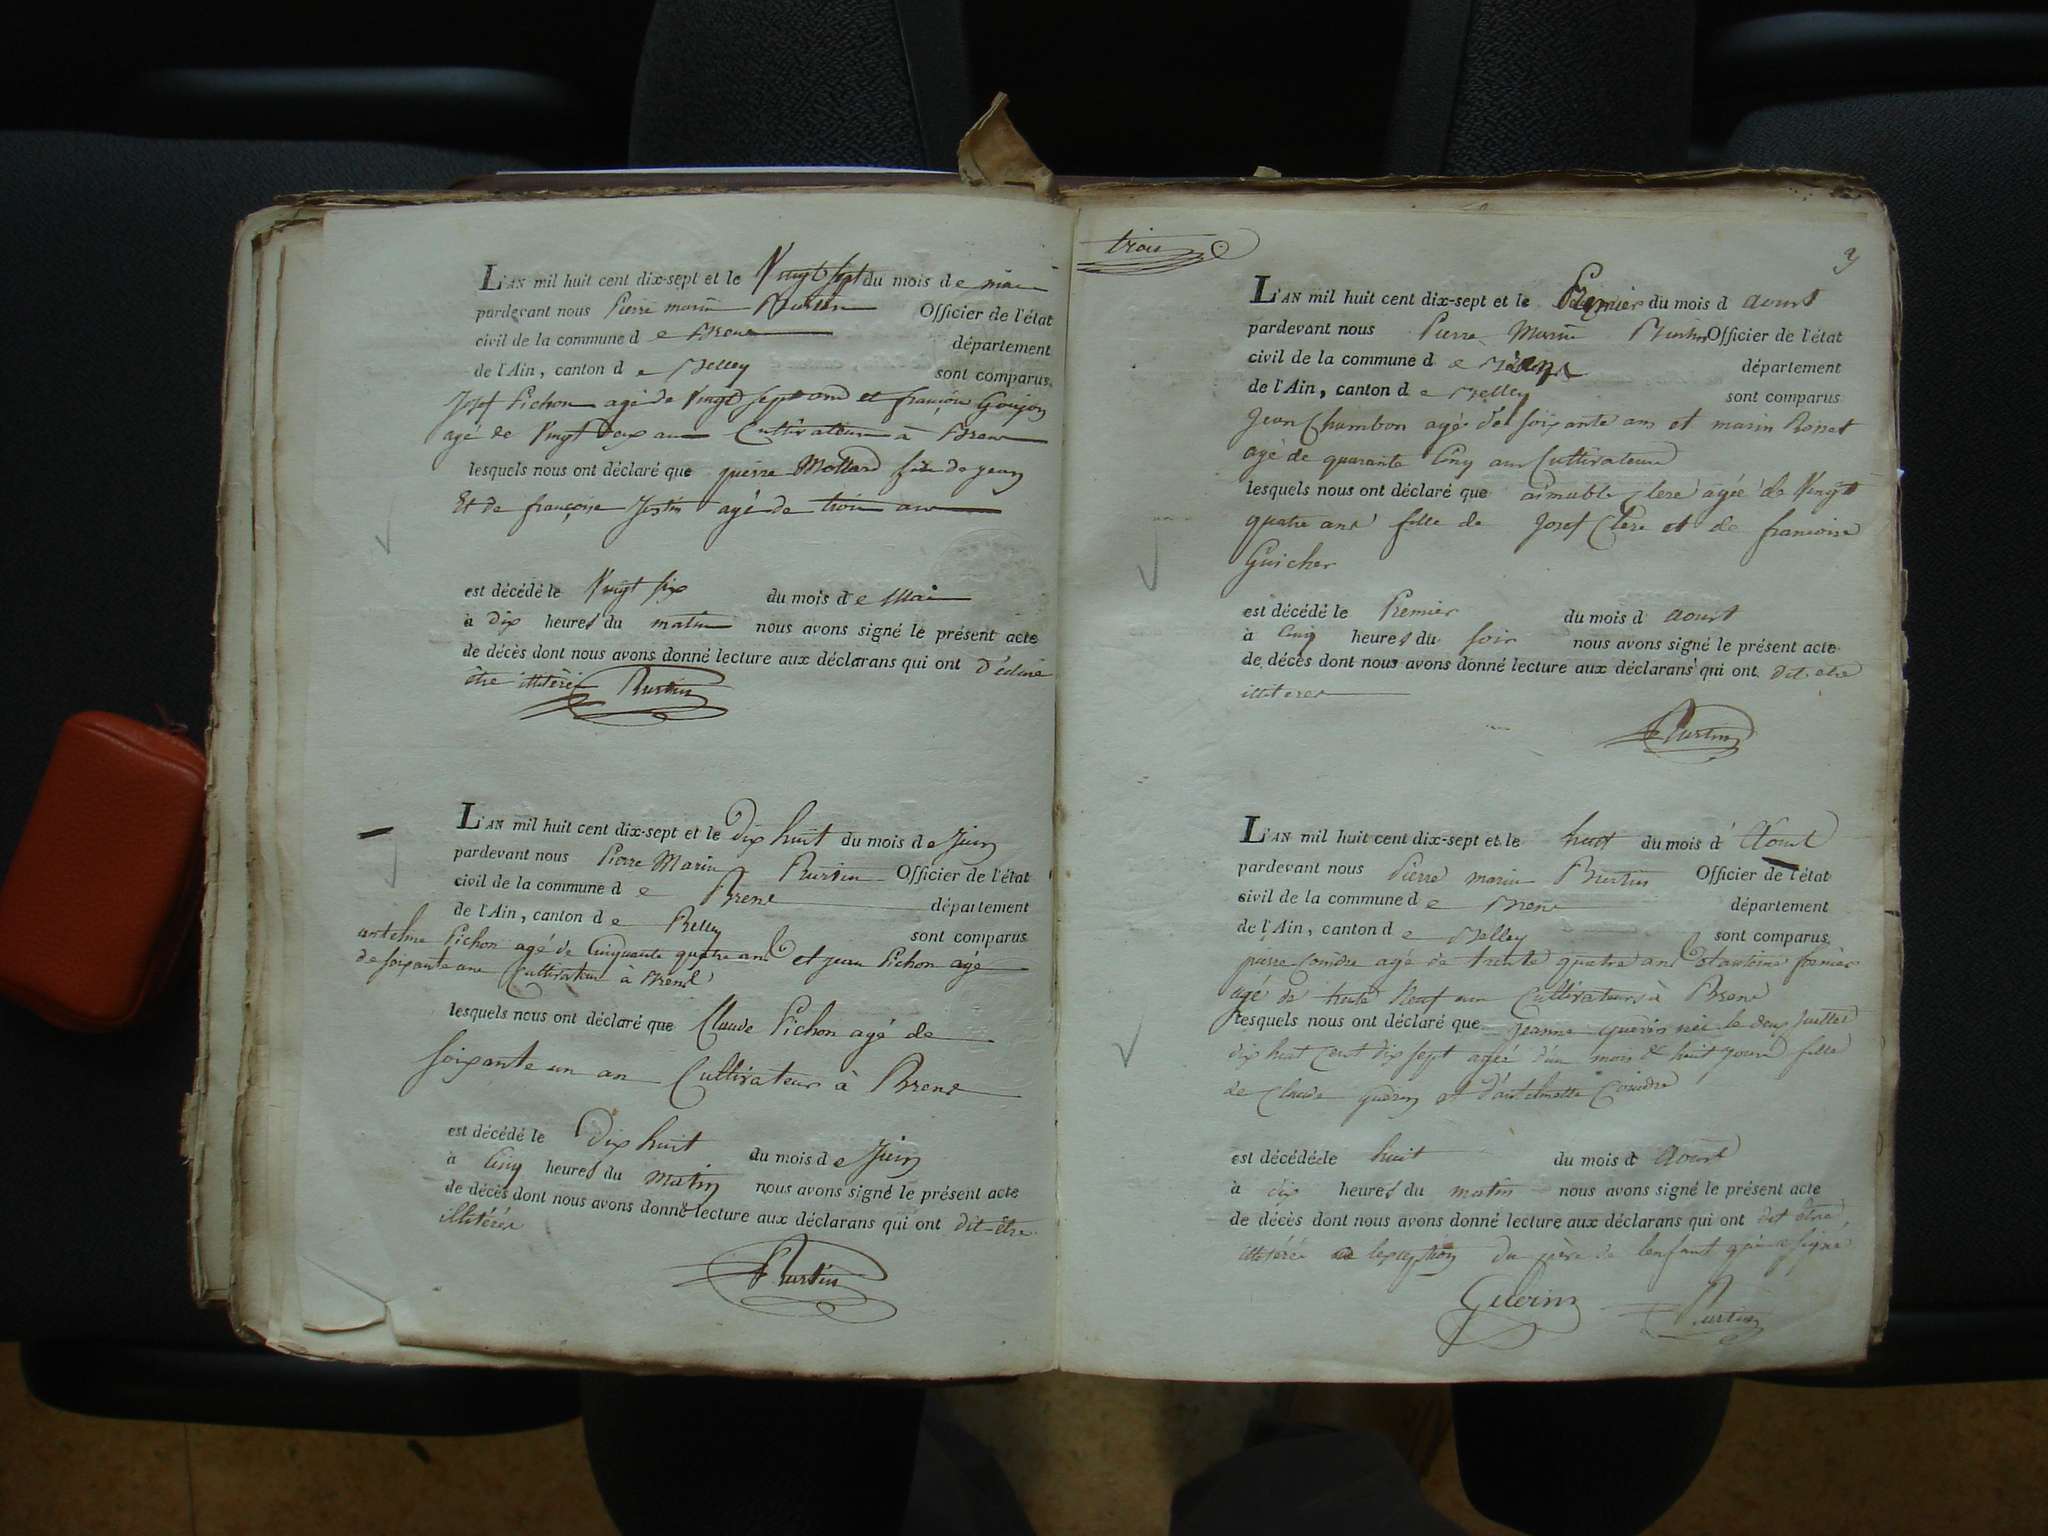 L'AN mil huit cent dix-sept et le Vingt sept du mois de mai
pardevant nous Pierre marin Burtin Officier de l'état
civil de la commune de Brens
département
de l'Ain, canton de Belley
sont comparus
Josef Pichon agé de Vingt sept and et françois Goujon
agé de Vingt Deux an Cultivateur à Brens
lesquels nous ont déclaré que pierre Mollard fils de jean
Et de françoise Jostin agé de trois an
est décédé le Vingt six du mois de Mai
à dix heures du matin nous avons signé le présent acte
de décès dont nous avons donné lecture aux déclarans qui ont Déclaré
être illitéré Burtin
L'AN mil huit cent dix-sept et le Dix huit du mois de Juin
pardevant nous Pierre Marin Burtin Officier de l'état
civil de la commune de Brens
département
de l'Ain, canton de Belley
sont comparus
antelme Pichon agé de Cinquante quatre and et jean Pichon agé
de soixante ans Cultivateur à Brens
lesquels nous ont déclaré que Claude Pichon agé de
soixante un an Cultivateur à Brens
est décédé le Dix huit du mois de Juin
à Cinq heures du Matin nous avons signé le présent acte
de décès dont nous avons donné lecture aux déclarans qui ont dit être
illitérés
Burtin
trois
3
L'AN mil huit cent dix-sept et le Premier du mois d aoust
pardevant nous Pierre Marin Burtin Officier de l'état
civil de la commune de Brens
département
de l'Ain, canton de Belley
sont comparus
Jean Chambon agé de soixante ans et marin Rosset
agé de quarante Cinq ans Cultivateurs
lesquels nous ont déclaré que aimable Clere agée de Vingt
quatre ans fille de Josef Clere et de francoise
Guicher
est décédé le Premier du mois d aoust
à Cinq heures du soir nous avons signé le présent acte
de décès dont nous avons donné lecture aux déclarans qui ont dit etre
illiteres
Burtin
L'AN mil huit cent dix-sept et le huit du mois d Aoust
pardevant nous Pierre marin Burtin Officier de l'état
civil de la commune de Brens
département
de l'Ain, canton de Belley
sont comparus
pierre Coindre agé de trente quatre ans et antoine
agé de trente Neuf an Cultivateurs à Brens
lesquels nous ont déclaré que jeanne guerin née le deux juillet
dix huit Cent dix sept agée d'un mois et huit jours fille
de Claude guerin et d'antelmette Coindre
est décédé le huit du mois d Aoust
à dix heures du matin nous avons signé le présent acte
de décès dont nous avons donné lecture aux déclarans qui ont dit être
illitérés a lexception du père de lenfant qui a signé
Guerin Burtin